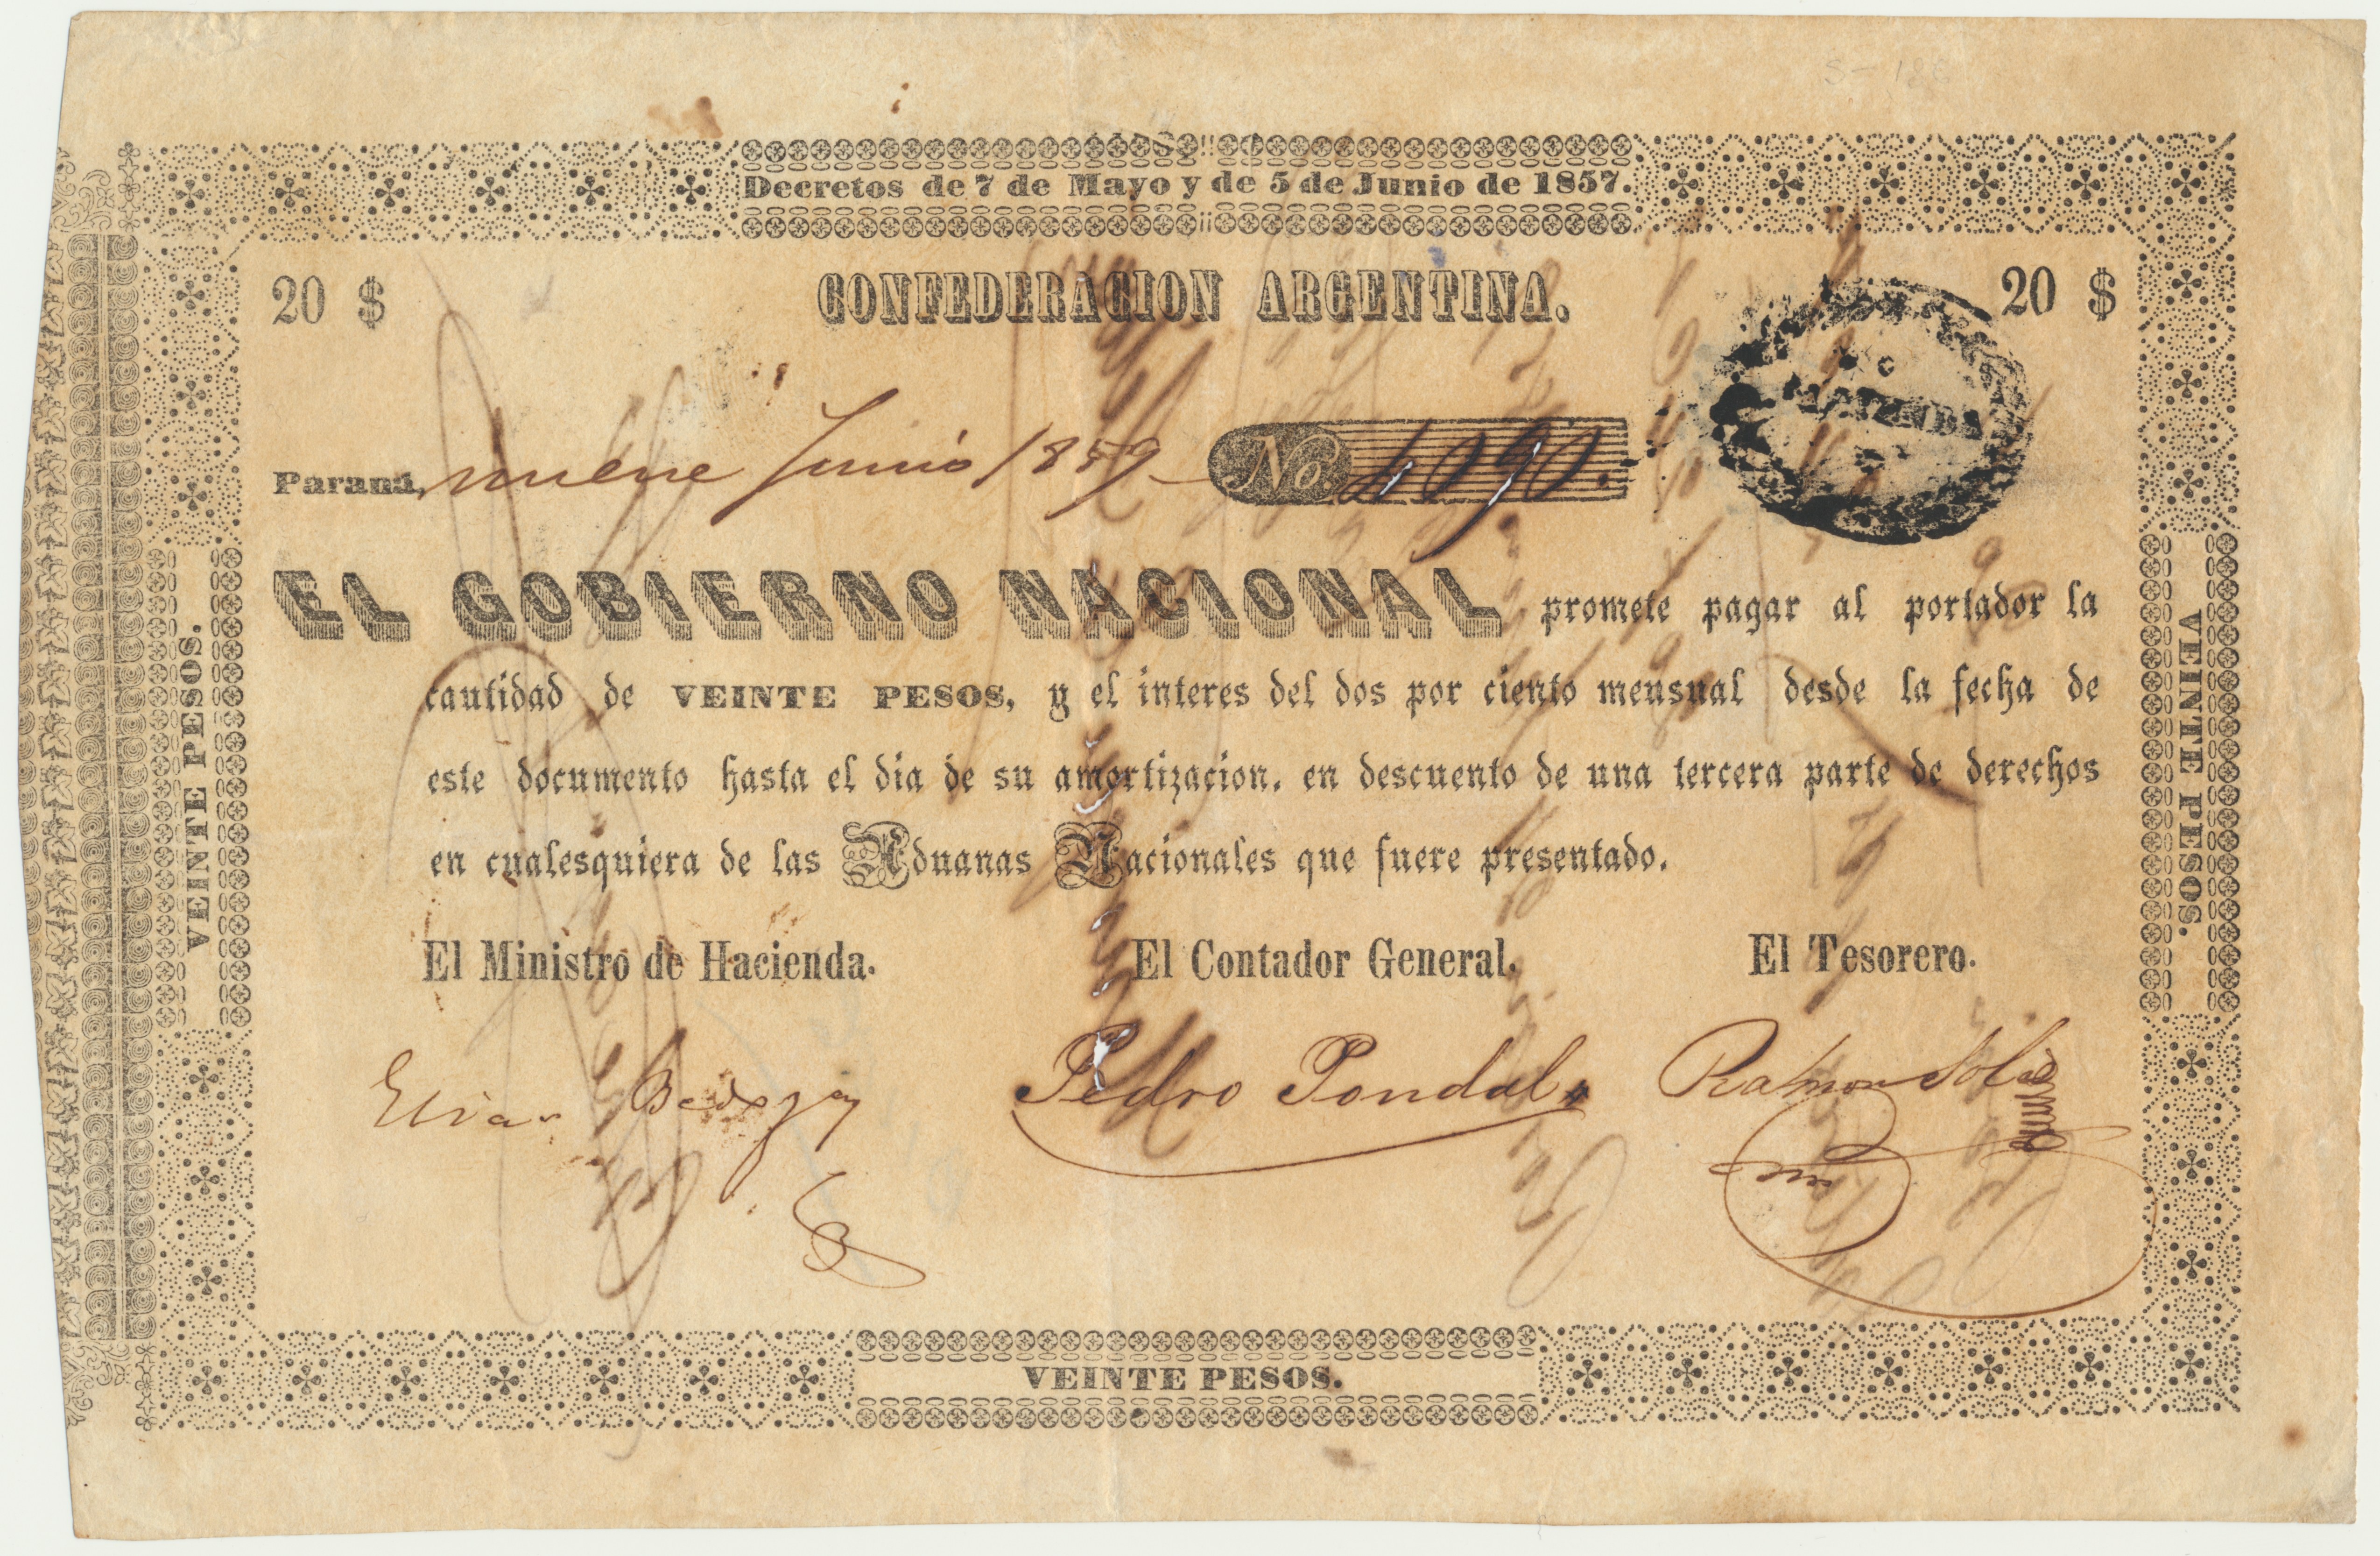 Decretos de 7 de Mayo y de 5 de Junio de 1857.
20 $ CONFEDERACION ARGENTINA. 20 $
HACIENDA
Paraná, nueve Junio 1859 No. 4090.
EL GOBIERNO NACIONAL promete pagar al portador la
cantidad de VEINTE PESOS, y el interes del dos por ciento mensual desde la fecha de
este documento hasta el dia de su amortizacion, en descuento de una tercera parte de derechos
en cualesquiera de las Aduanas Nacionales que fuere presentado.
El Ministro de Hacienda. El Contador General. El Tesorero.
Elias Bedoya Pedro Pondal Ramon Solá
VEINTE PESOS.
VEINTE PESOS.
VEINTE PESOS.